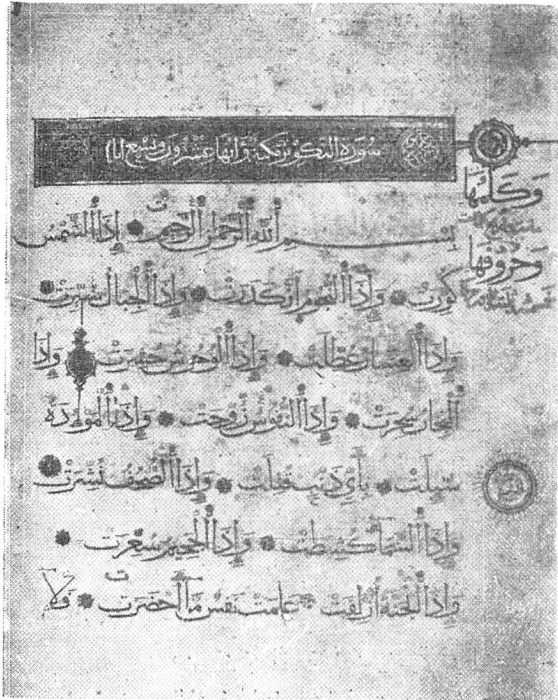 سورة التكوير مكية وآيها عشرون وتسع
وكلمها
وحروفها
بسم الله الرحمن الرحيم إذا الشمس
كورت وإذا النجوم انكدرت وإذا الجبال سيرت
وإذا العشار عطلت وإذا الوحوش حشرت وإذا
البحار سجرت وإذا النفوس زوجت وإذا الموءدة
سئلت بأي ذنب قتلت وإذا الصحف نشرت
وإذا السماء كشطت وإذا الجحيم سعرت
وإذا الجنة أزلفت علمت نفس ما أحضرت فلا